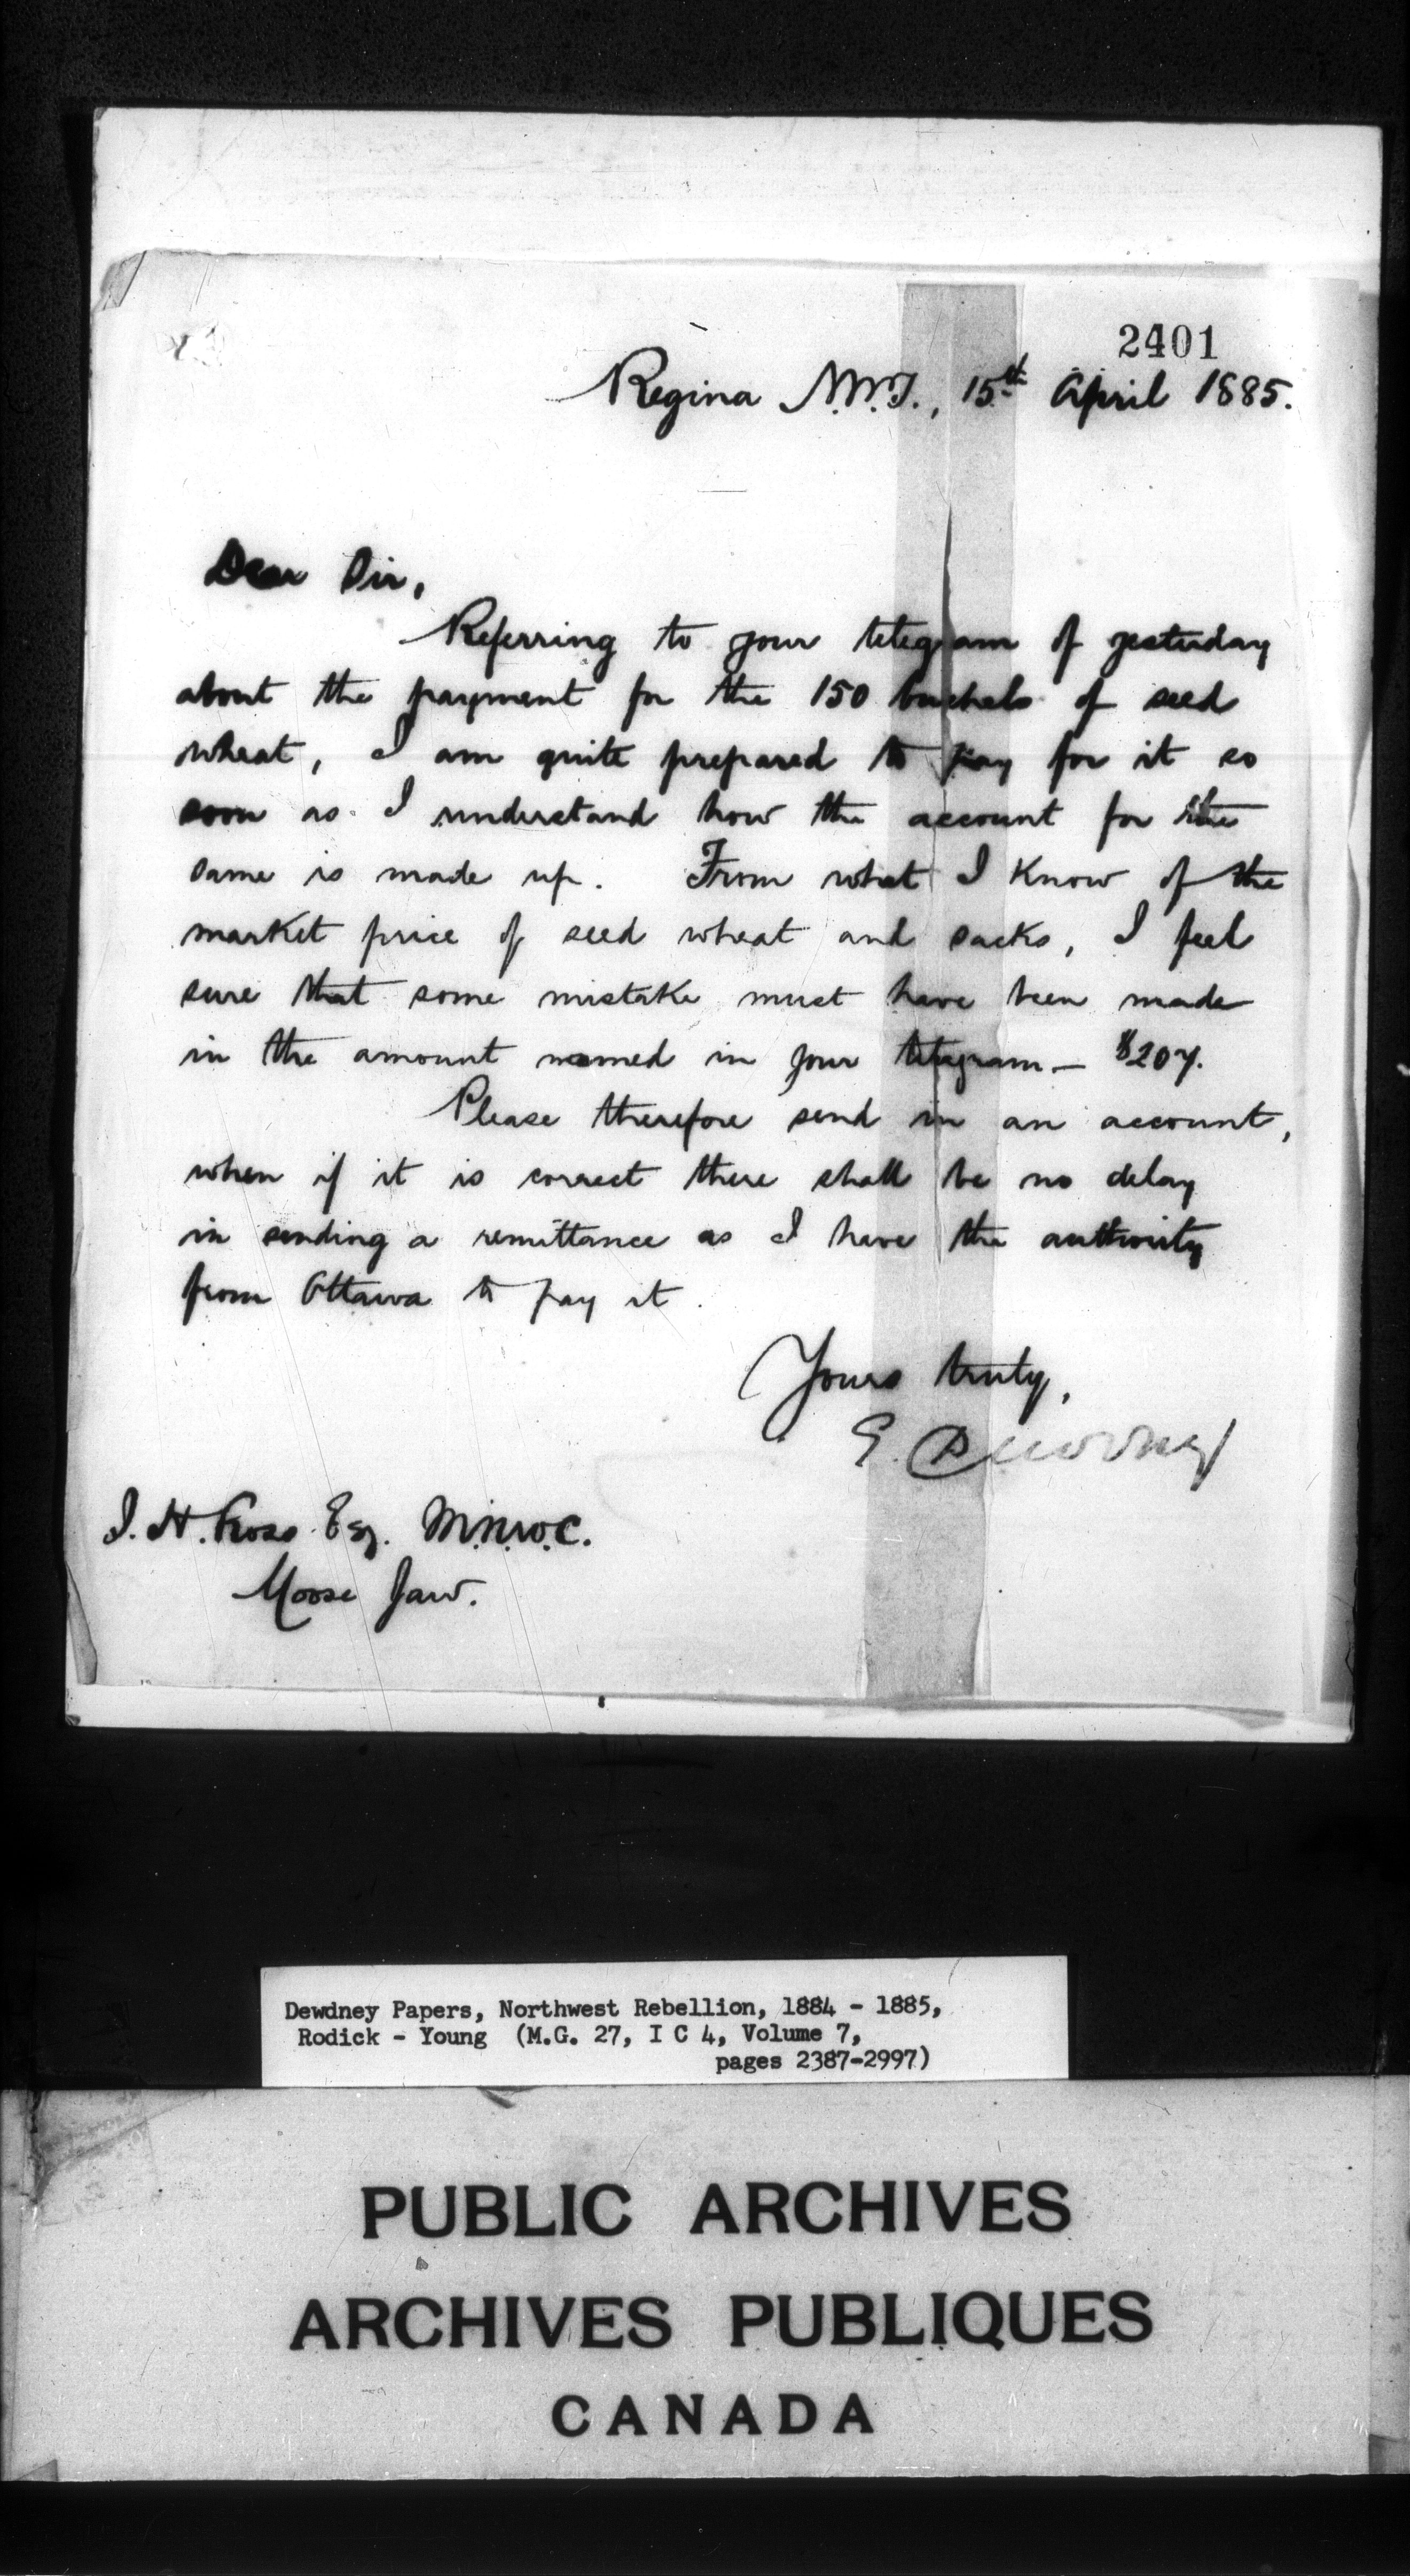 2401
Regina N.W.T., 15th April 1885.
Dear Sir,
Referring to your telegram of yesterday
about the payment for the 150 bushels of seed
wheat, I am quite prepared to pay for it so
soon as I understand how the account for the
same is made up. From what I know of the
market price of seed wheat and sacks, I feel
sure that some mistake must have been made
in the amount named in your telegram — $207.
Please therefore send in an account,
when if it is correct there shall be no delay
in sending a remittance as I have the authority
from Ottawa to pay it.
Yours truly,
E. Dewdney
J. H. Ross Esq. M.N.W.C.
Moose Jaw.
Dewdney Papers, Northwest Rebellion, 1884 - 1885,
Rodick - Young (M.G. 27, I C 4, Volume 7,
pages 2387-2997)
PUBLIC ARCHIVES
ARCHIVES PUBLIQUES
CANADA